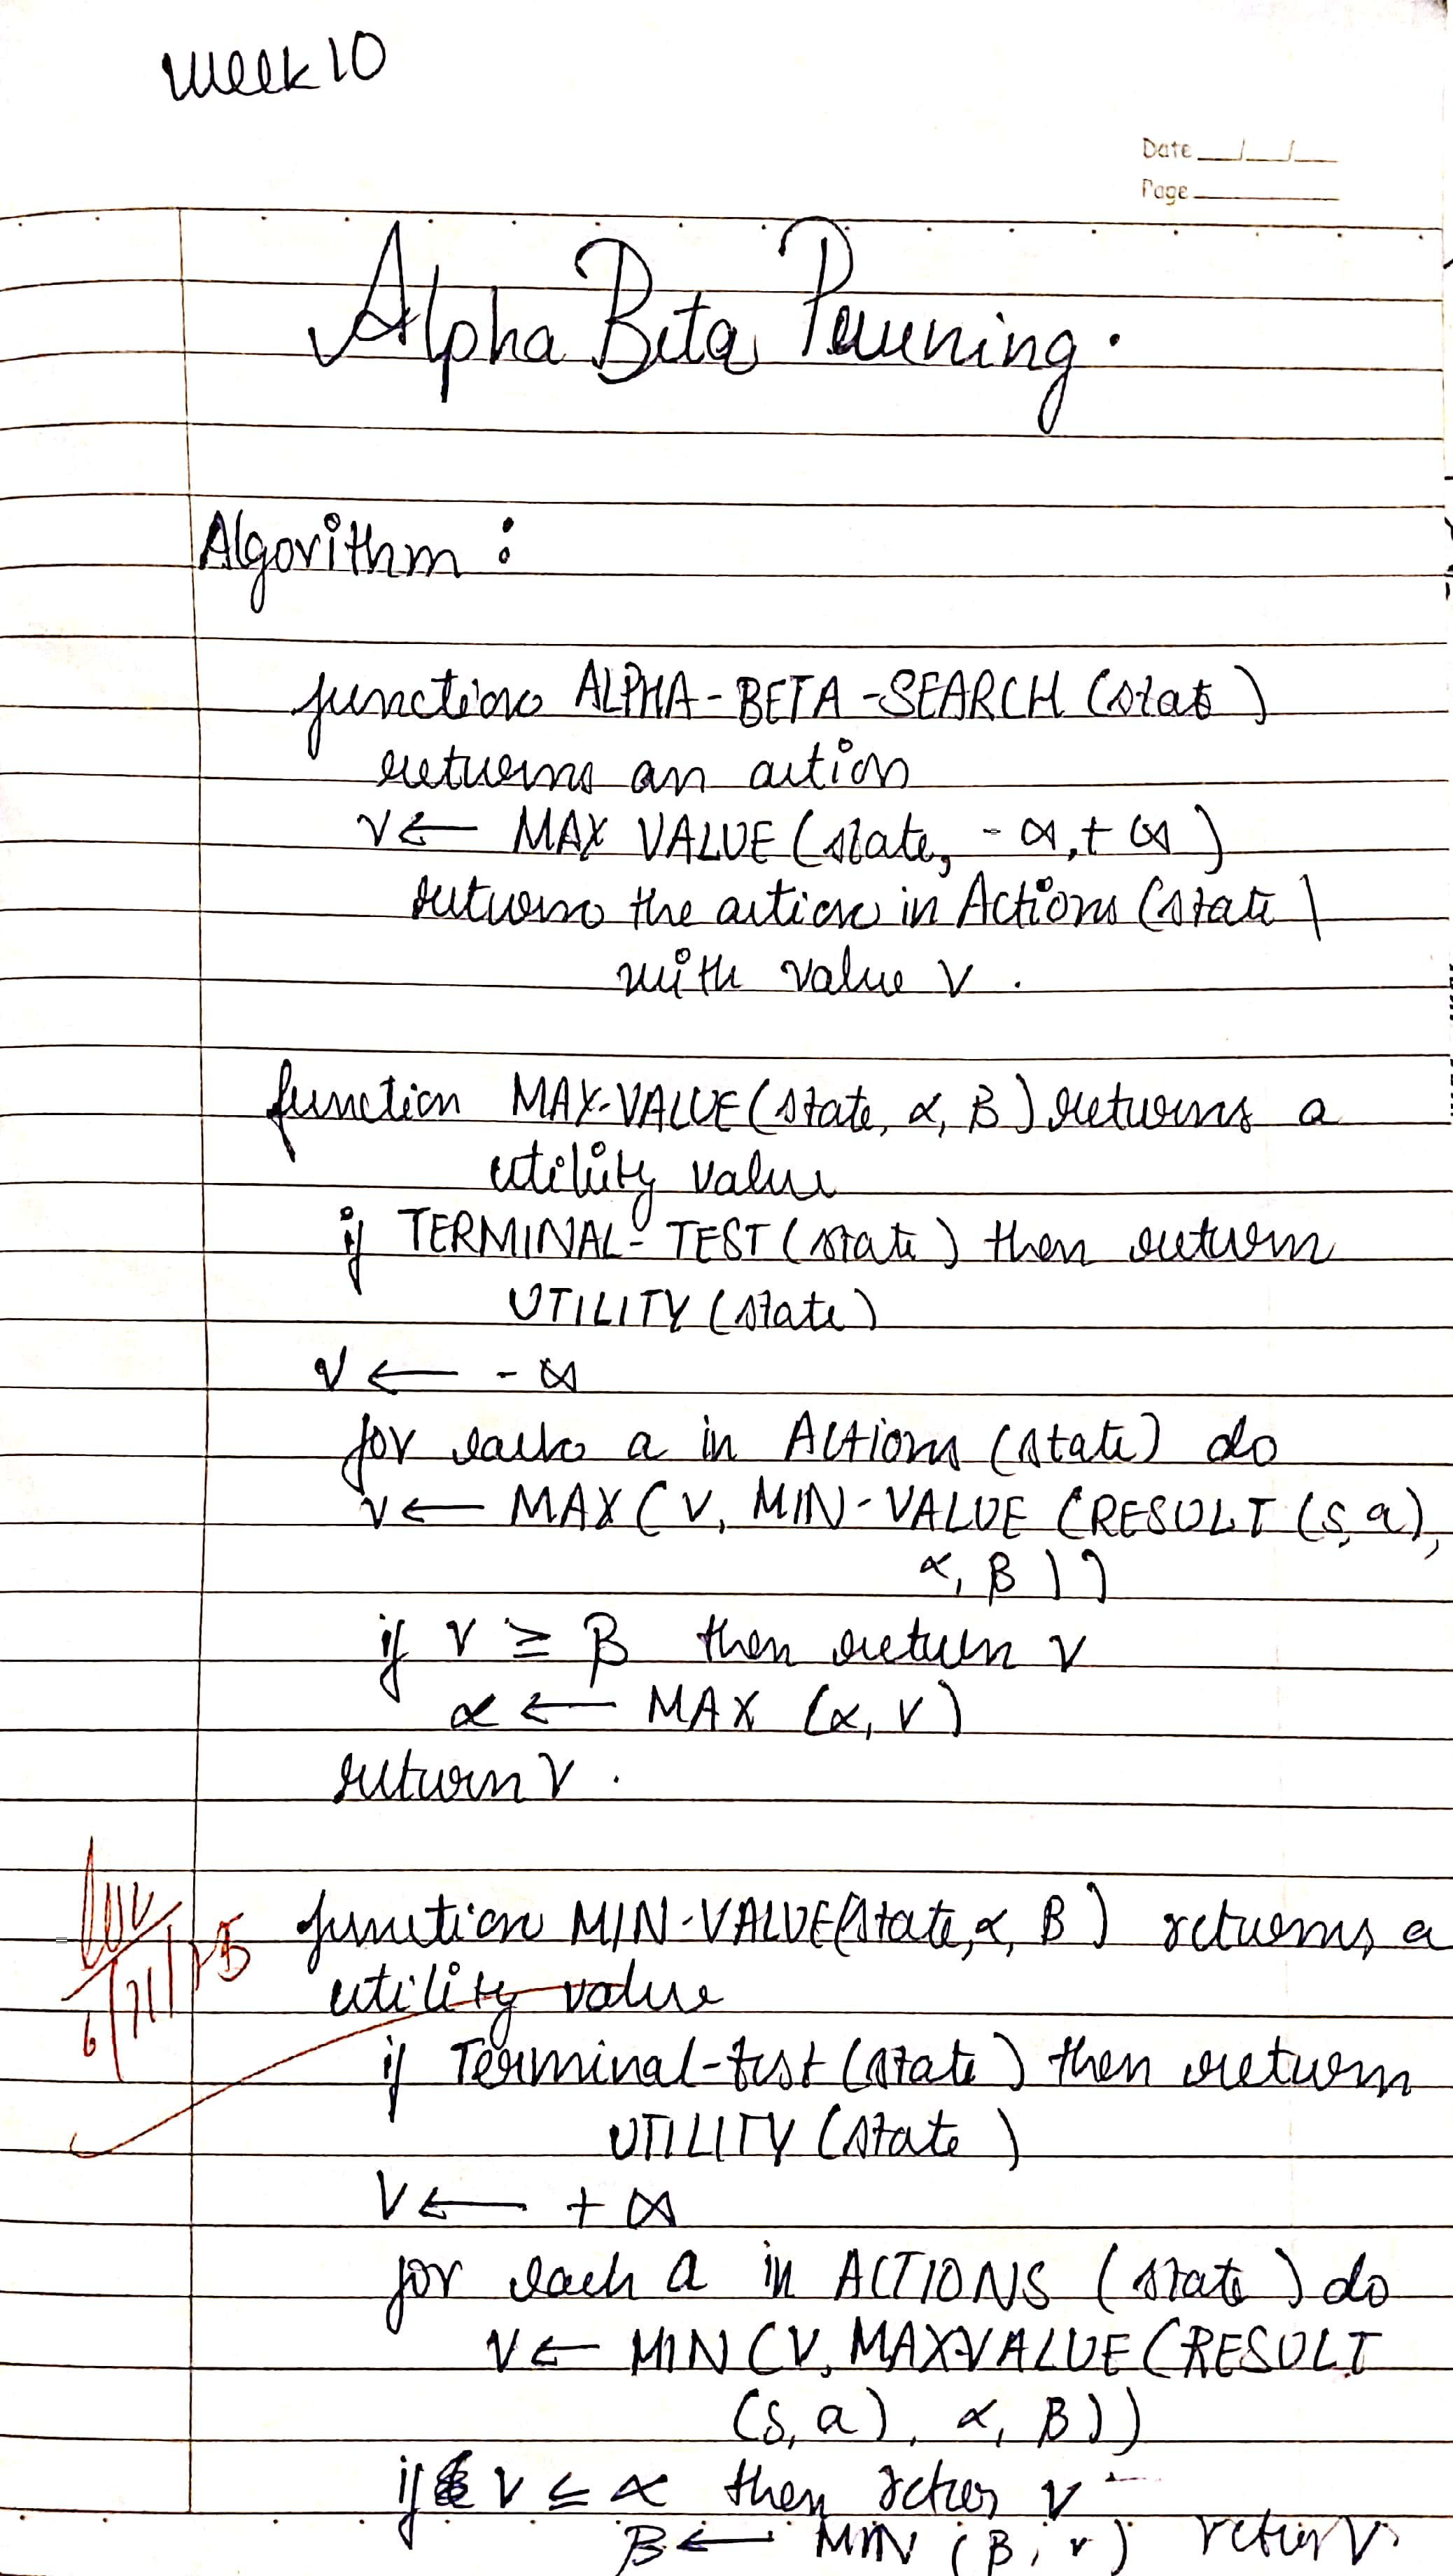 Week 10
Date __/__/__
Page
Alpha Beta Pruning.
Algorithm :
function ALPHA-BETA-SEARCH (state)
returns an action
v ← MAX VALUE (state, -∞, +∞)
returns the action in Actions (state)
with value v .
function MAX-VALUE (state, α, β) returns a
utility value
if TERMINAL-TEST (state) then return
UTILITY (state)
v ← -∞
for each a in Actions (state) do
v ← MAX (V, MIN-VALUE (RESULT (s, a),
α, β ))
if v ≥ β then return v
α ← MAX (α, v)
return v .
function MIN-VALUE (state, α, β) returns a
utility value
if Terminal-test (state) then return
UTILITY (state)
V ← +∞
for each a in ACTIONS (state) do
v ← MIN (V, MAXVALUE (RESULT
(s, a), α, β))
if v ≤ α then return v
β ← MIN (β, v) return v.